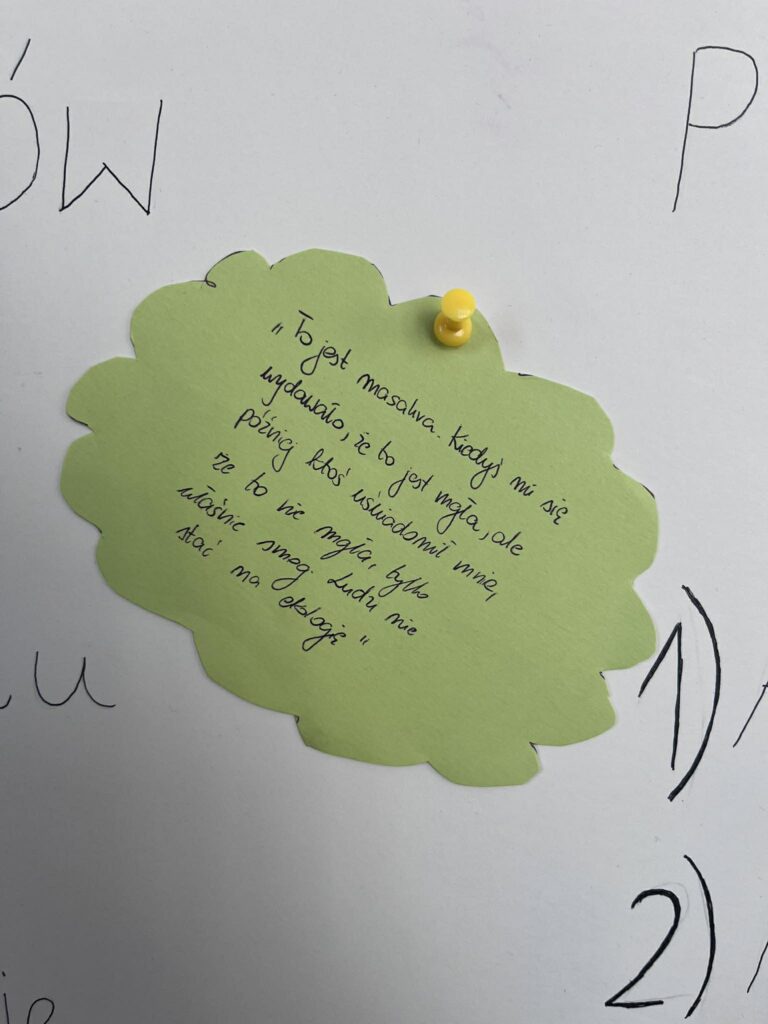 ÓW
P
"To jest masakra. Kiedyś mi się
wydawało, że to jest mgła, ale
później ktoś uświadomił mnie,
że to nie mgła, tylko
właśnie smog. Ludzi nie
stać na ekologię"
u
1)
2)
ie